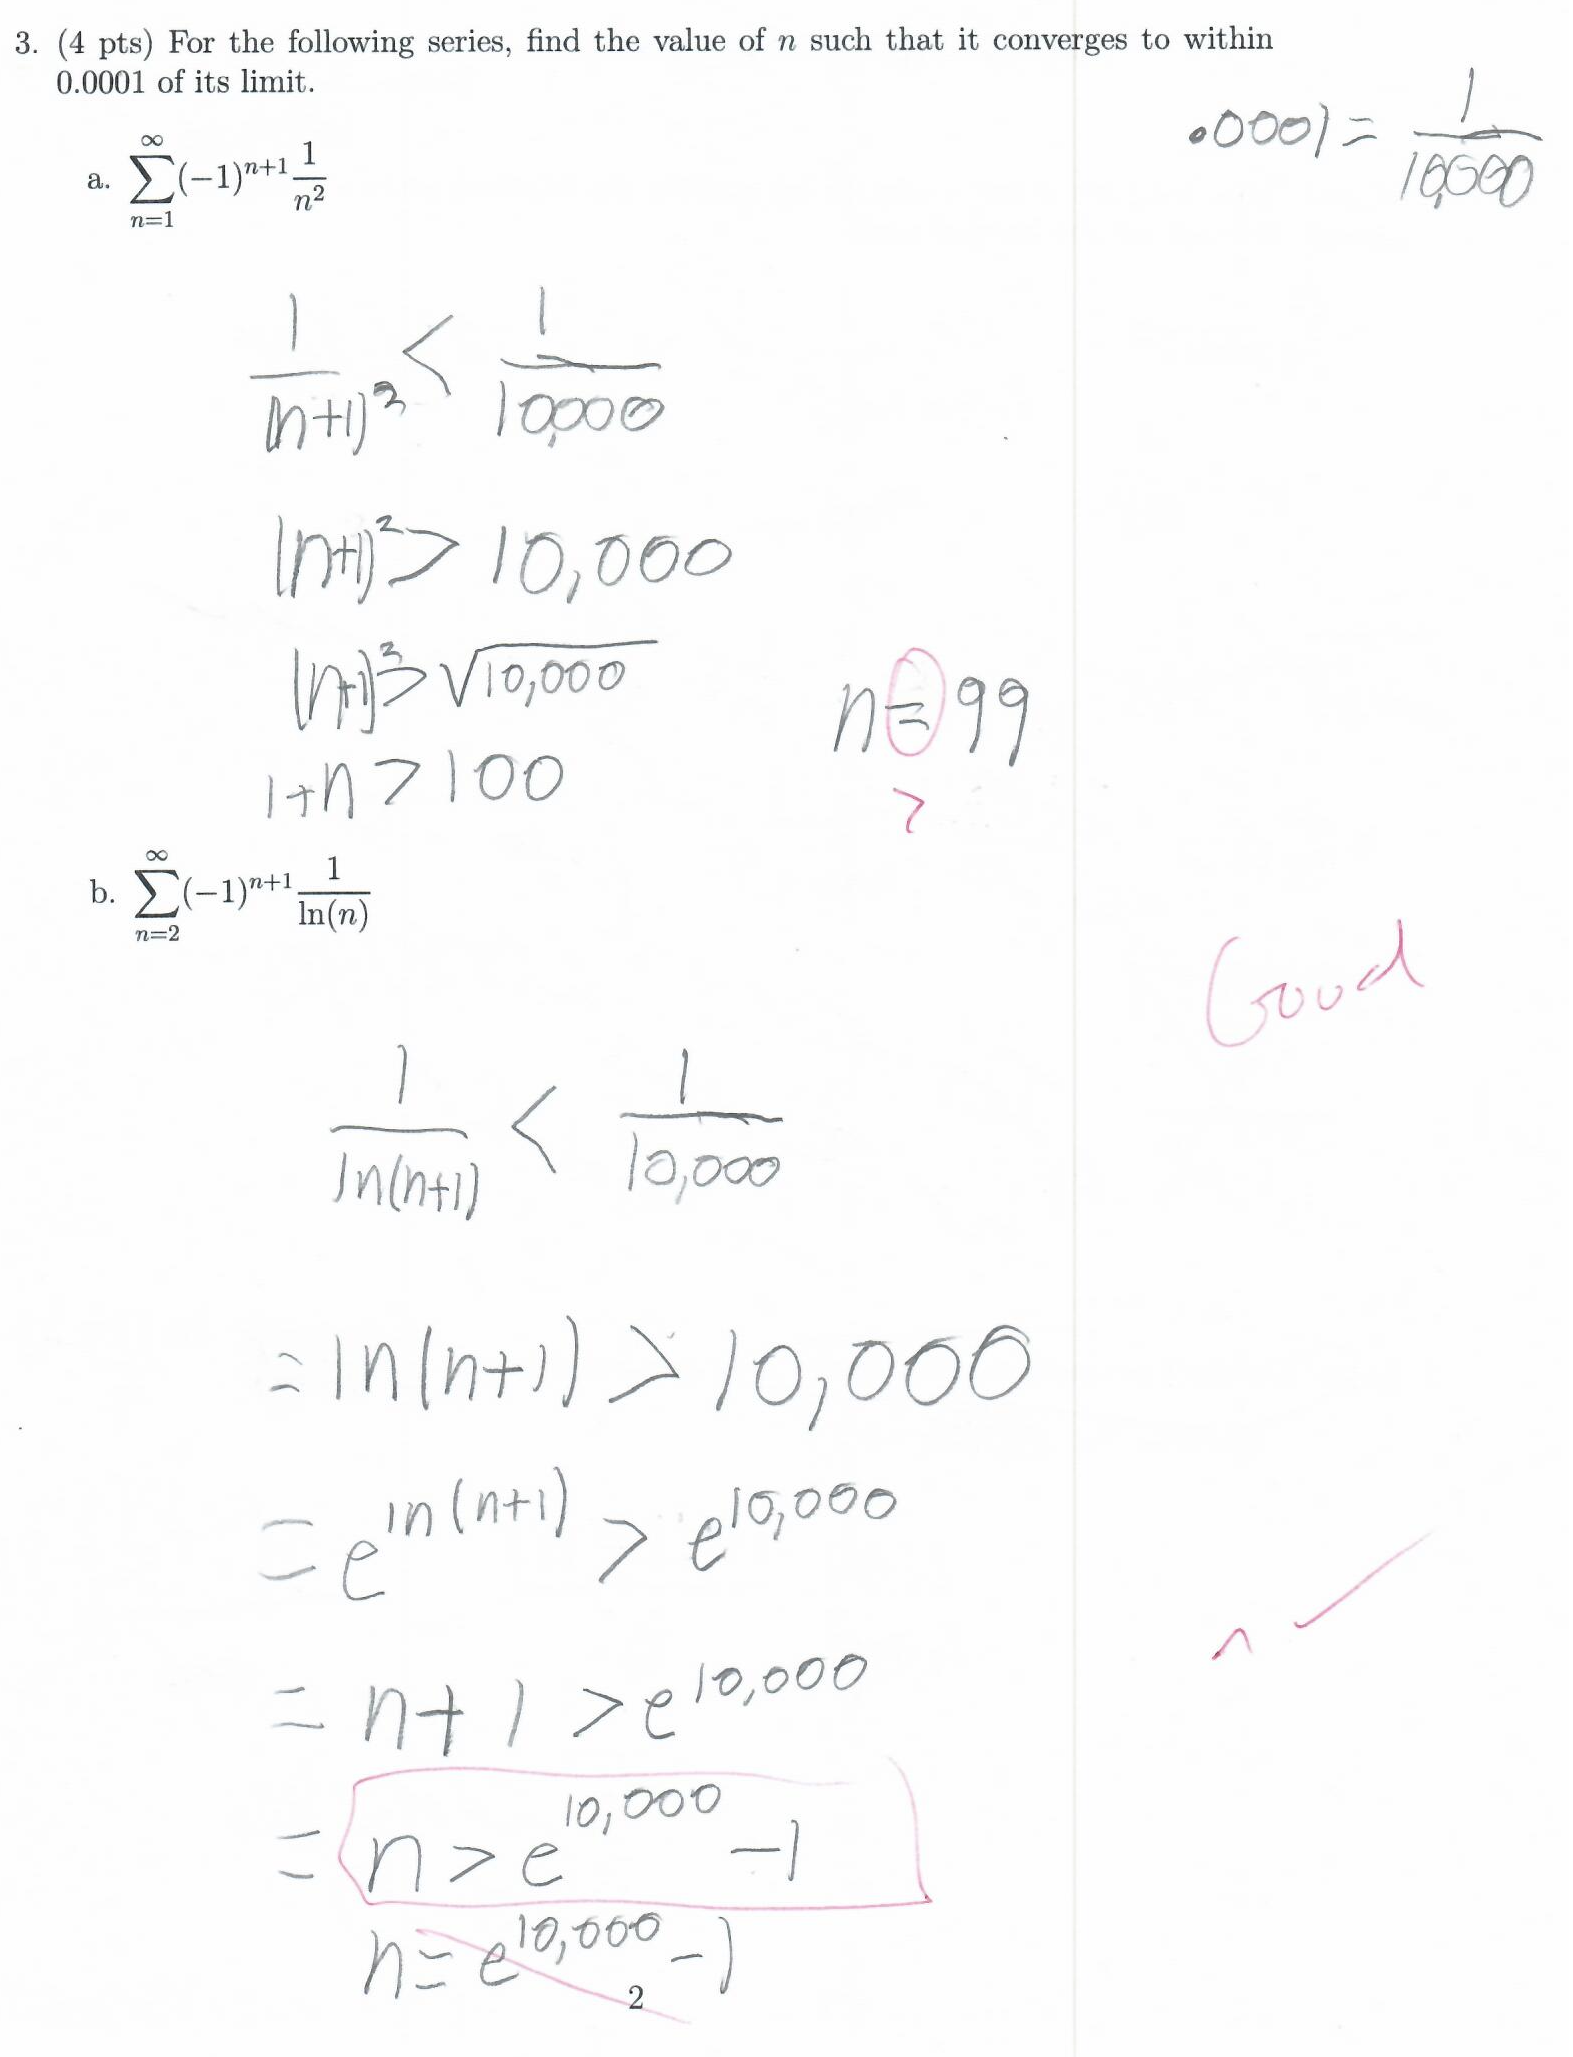 3. (4 pts) For the following series, find the value of n such that it converges to within
0.0001 of its limit.
.0001 = 1/10,000
a. ∑_{n=1}^{∞} (−1)^{n+1} 1/n²
1/(n+1)² < 1/10,000
(n+1)² > 10,000
(n+1)² > √10,000
n = 99
1+n > 100
>
b. ∑_{n=2}^{∞} (−1)^{n+1} 1/ln(n)
Good
1/ln(n+1) < 1/10,000
= ln(n+1) > 10,000
= e^{ln(n+1)} > e^{10,000}
= n+1 > e^{10,000}
= n > e^{10,000} −1
n = e^{10,000} −1
2